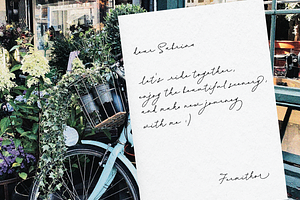 dear Sabrina
let's ride together,
enjoy the beautiful scenery
and make new journey
with me :)